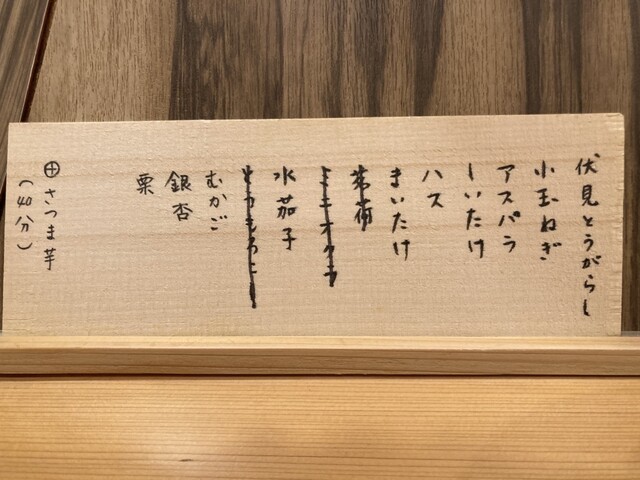 伏見とうがらし
小玉ねぎ
アスパラ
しいたけ
ハス
まいたけ
茗荷
ミニオクラ
水茄子
とうもろこし
むかご
銀杏
栗
⊕さつま芋
(40分)